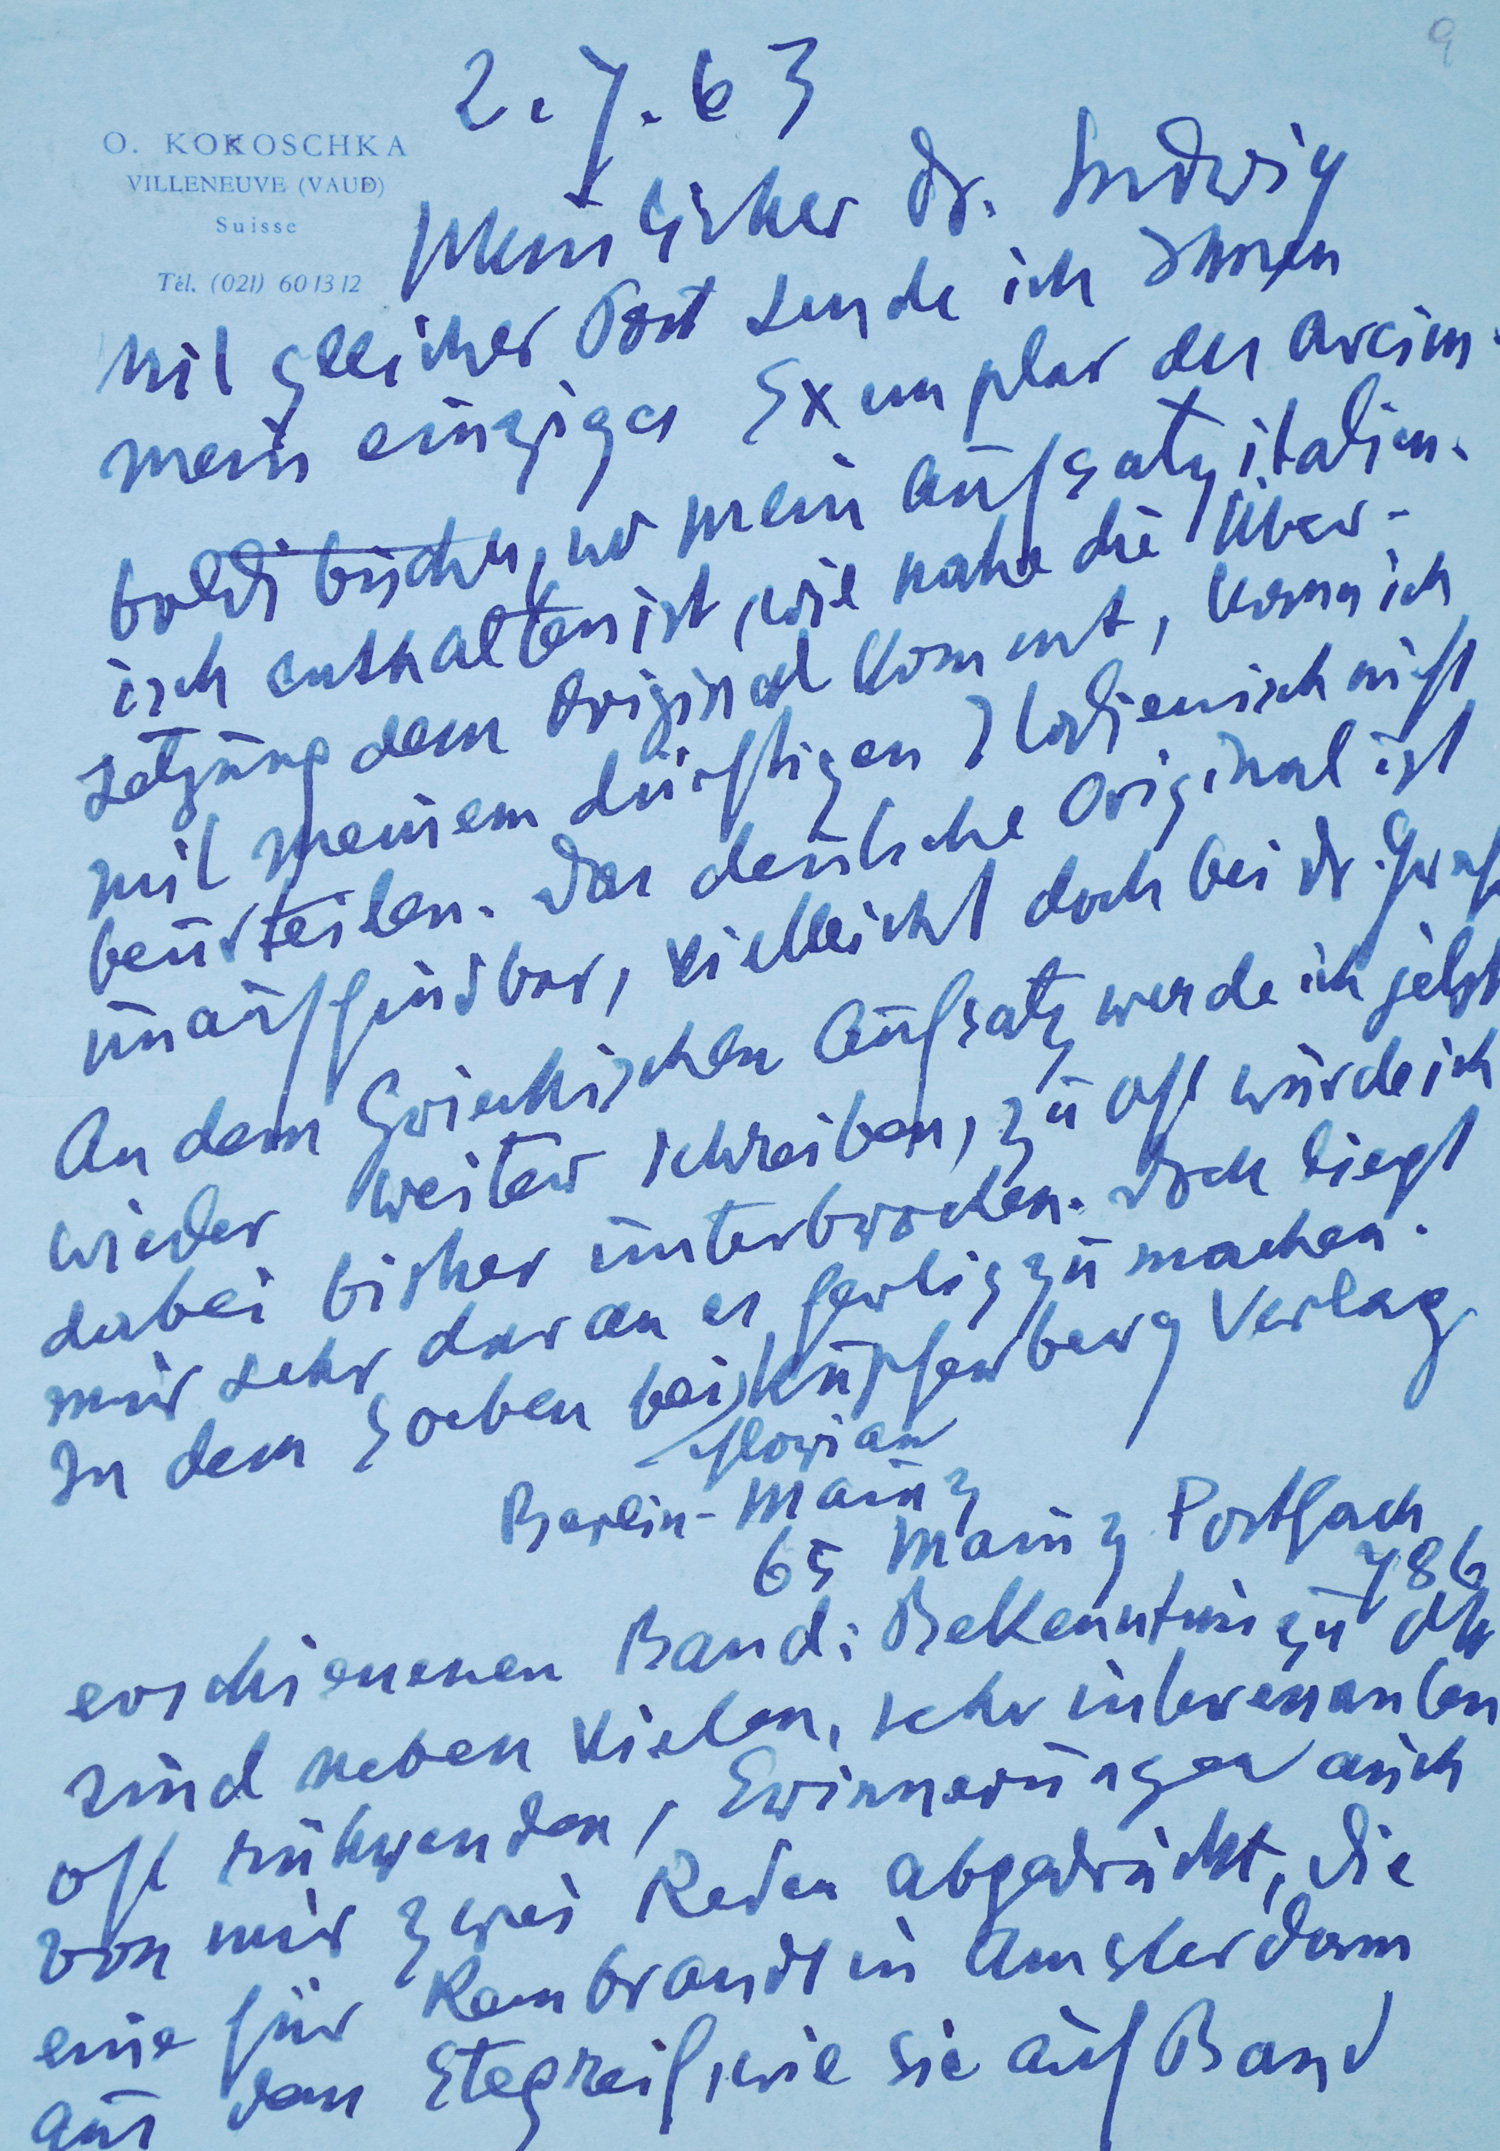 9
2.7.63
O. KOKOSCHKA
VILLENEUVE (VAUD)
Suisse
Tél. (021) 60 13 12
Mein lieber Dr. Ludwig
mit gleicher Post sende ich Ihnen
mein einziges Exemplar des Arcim-
boldi buches, wo mein Aufsatz italien-
isch enthalten ist, wie nahe die Über-
setzung dem Original kommt, kann ich
mit meinem dürftigen Italienisch nicht
beurteilen. Das deutsche Original ist
unauffindbar, vielleicht doch bei Dr.
An dem Griechischen Aufsatz werde ich jetzt
wieder weiter schreiben, zu oft wurde ich
dabei bisher unterbrochen. Doch liegt
mir sehr daran es fertig zu machen.
In dem soeben bei Kupferberg Verlag
Florian
Berlin-Mainz
65 Mainz Postfach
786
erschienenen Band: Bekenntnis zu
sind neben vielen, sehr interessanten
oft rührenden, Erinnerungen auch
von mir zwei Reden abgedruckt, die
eine für Rembrandt in Amsterdam
aus dem Stegreif, wie sie auf Band